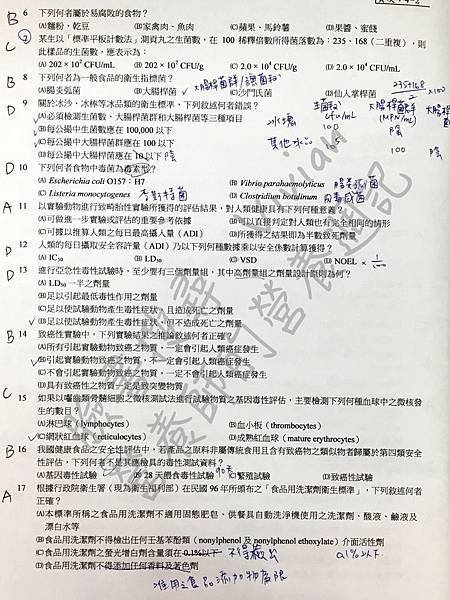 B 6 下列何者屬於易腐敗的食物？
(A)麵粉、乾豆 (B)家禽肉、魚肉 (C)蘋果、馬鈴薯 (D)果醬、蜜餞
C 7 某生以「標準平板計數法」測貢丸之生菌數，在 100 稀釋倍數所得菌落數為：235、168（二重複），則
此樣品的生菌數，應表示為：
(A) 202 × 10² CFU/mL (B) 202 × 10² CFU/g (C) 2.0 × 10⁴ CFU/g (D) 2.0 × 10⁴ CFU/mL
B 8 下列何者為一般食品的衛生指標菌？
(A)腸炎弧菌 (B)大腸桿菌 (C)沙門氏菌 (D)仙人掌桿菌
235+168 / 2 ×100
D 9 關於冰沙、冰棒等冰品類的衛生標準，下列敘述何者錯誤？
(A)必須檢測生菌數、大腸桿菌群和大腸桿菌等三種項目
(B)每公撮中生菌數應在 100,000 以下
(C)每公撮中大腸桿菌群應在 100 以下
(D)每公撮中大腸桿菌應在 10 以下 陰
生菌數 CFU/mL 大腸桿菌群 (MPN/mL) 大腸桿菌
冰塊 100 陰
其他冰品 10⁵ 100 陰
D 10 下列何者食物中毒菌為毒素型？
(A) Escherichia coli O157：H7 (B) Vibrio parahaemolyticus 腸炎弧菌
(C) Listeria monocytogenes 李斯特菌 (D) Clostridium botulinum 肉毒桿菌
A 11 以實驗動物進行致畸胎性實驗所獲得的評估結果，對人類健康具有下列何種意義？
(A)可做進一步實驗或評估的重要參考依據 (B)可以直接判定對人類也有完全相同的情形
(C)可據以推算人類之每日最高攝入量（ADI） (D)所獲得之結果即為半數致死劑量
D 12 人類的每日攝取安全容許量（ADI）乃以下列何種數據乘以安全係數計算獲得？
(A) IC₅₀ (B) LD₅₀ (C) VSD (D) NOEL × 1/100
D 13 進行亞急性毒性試驗時，至少要有三個劑量組，其中高劑量組之劑量設計原則為何？
(A) LD₅₀ 一半之劑量
(B)足以引起最低毒性作用之劑量
(C)足以使試驗動物產生毒性症狀，且造成死亡之劑量
(D)足以使試驗動物產生毒性症狀，但不造成死亡之劑量
B 14 致癌性實驗中，下列何種實驗結果之推論敘述何者正確？
(A)所有引起實驗動物致癌之物質，一定會引起人類癌症發生
(B)引起實驗動物致癌之物質，不一定會引起人類癌症發生
(C)不會引起實驗動物致癌之物質，一定不會引起人類癌症發生
(D)具有致癌性之物質一定是致突變物質
C 15 如果以囓齒類骨髓細胞之微核測試法進行試驗物質之基因毒性評估，主要檢測下列何種血球中之微核發
生的數目？
(A)淋巴球（lymphocytes） (B)血小板（thrombocytes）
(C)網狀紅血球（reticulocytes） (D)成熟紅血球（mature erythrocytes）
B 16 我國健康食品之安全性評估中，若產品之原料非屬傳統食用且含有致癌物之類似物者歸屬於第四類安全
性評估，下列何者不是其應檢具的毒性測試資料？
(A)基因毒性試驗 (B) 28 天餵食毒性試驗 90天 (C)繁殖試驗 (D)致癌性試驗
A 17 根據行政院衛生署（現為衛生福利部）在民國 96 年所頒布之「食品用洗潔劑衛生標準」，下列敘述何者
正確？
(A)本標準所稱之食品用洗潔劑不適用固態肥皂、供餐具自動洗淨機使用之洗潔劑、酸液、鹼液及
漂白水等
(B)食品用洗潔劑不得檢出任何壬基苯酚類（nonylphenol 及 nonylphenol ethoxylate）介面活性劑 0.1%以下
(C)食品用洗潔劑之螢光增白劑含量須在 0.1%以下 不得檢出
(D)食品用洗潔劑不得添加任何香料及著色劑
准用之食品添加物為限